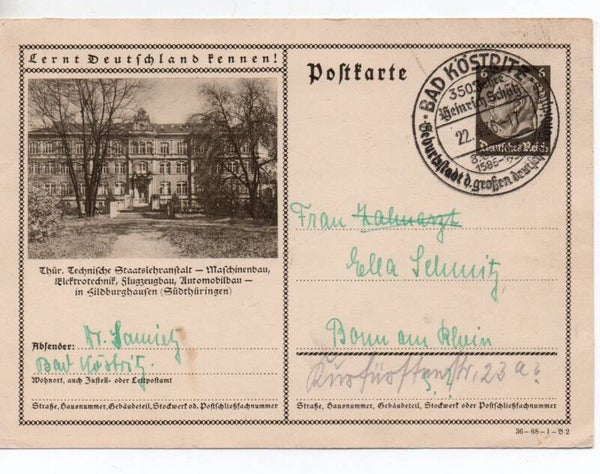 Lernt Deutschland kennen!
Thür. Technische Staatslehranstalt — Maschinenbau,
Elektrotechnik, Flugzeugbau, Automobilbau —
in Hildburghausen (Südthüringen)
Absender: Dr.
Bad Köstritz.
Wohnort, auch Zustell- oder Leitpostamt
Straße, Hausnummer, Gebäudeteil, Stockwerk od. Postschließfachnummer
Postkarte
BAD KÖSTRITZ
350 Jahre
Heinrich Schütz
22.
1585-
Geburtsstadt d. großen deutschen
6 6
Deutsches Reich
Frau Zahnarzt
Ella Schmitz
Bonn am Rhein
Kurfürstenstr. 23 a?
Straße, Hausnummer, Gebäudeteil, Stockwerk oder Postschließfachnummer
36-68-1-B2